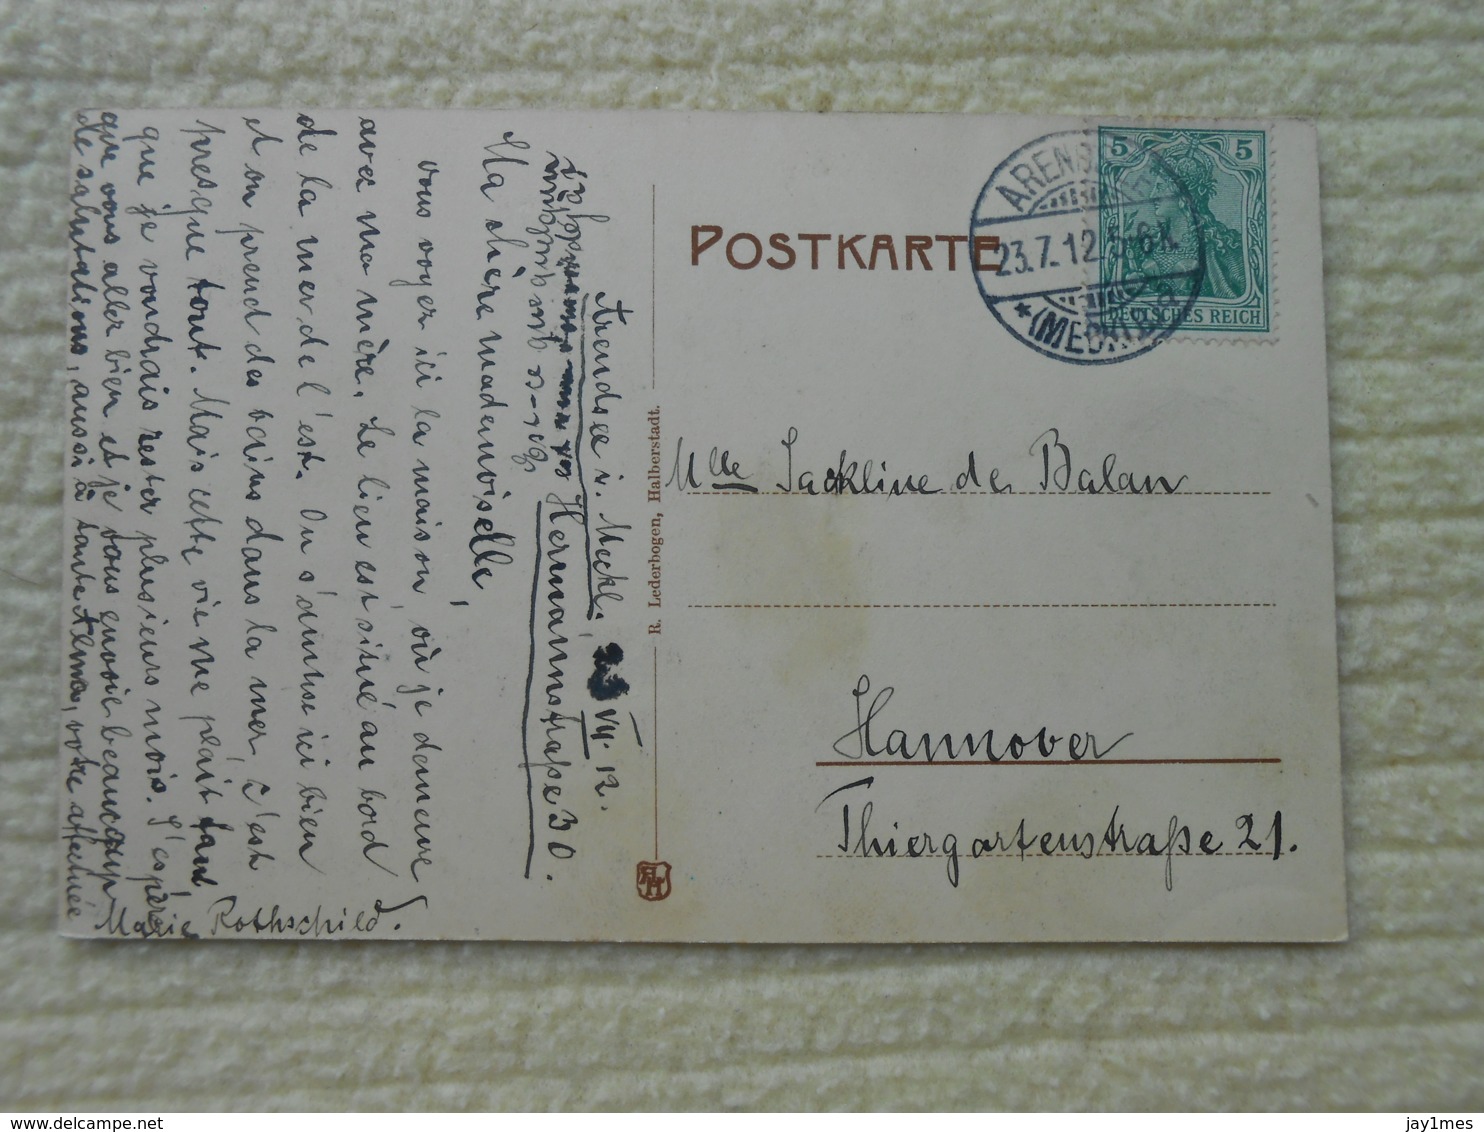 POSTKARTE
ARENDSEE
23.7.12.5-6N.
* (MECKLB)
5 5
DEUTSCHES REICH
Mlle Jackline de Balan
Hannover
Thiergartenstraße 21.
R. Lederbogen, Halberstadt.
Arendsee i. Meckl., VII. 12.
Herrmannstraße 30.
Ma chère mademoiselle,
vous voyer ici la maison, où je demeure
avec ma mère. Le lieu est situé au bord
de la mer de l'est. On s'amuse ici bien
et on prend des bains dans la mer, c'est
presque tout. Mais cette vie me plaît tant,
que je voudrais rester plusieurs mois. J'espère
que vous aller bien et je vous envoie beaucoup
de salutations, aussi à tante, votre affectueé
Marie Rothschild.
jay1mes